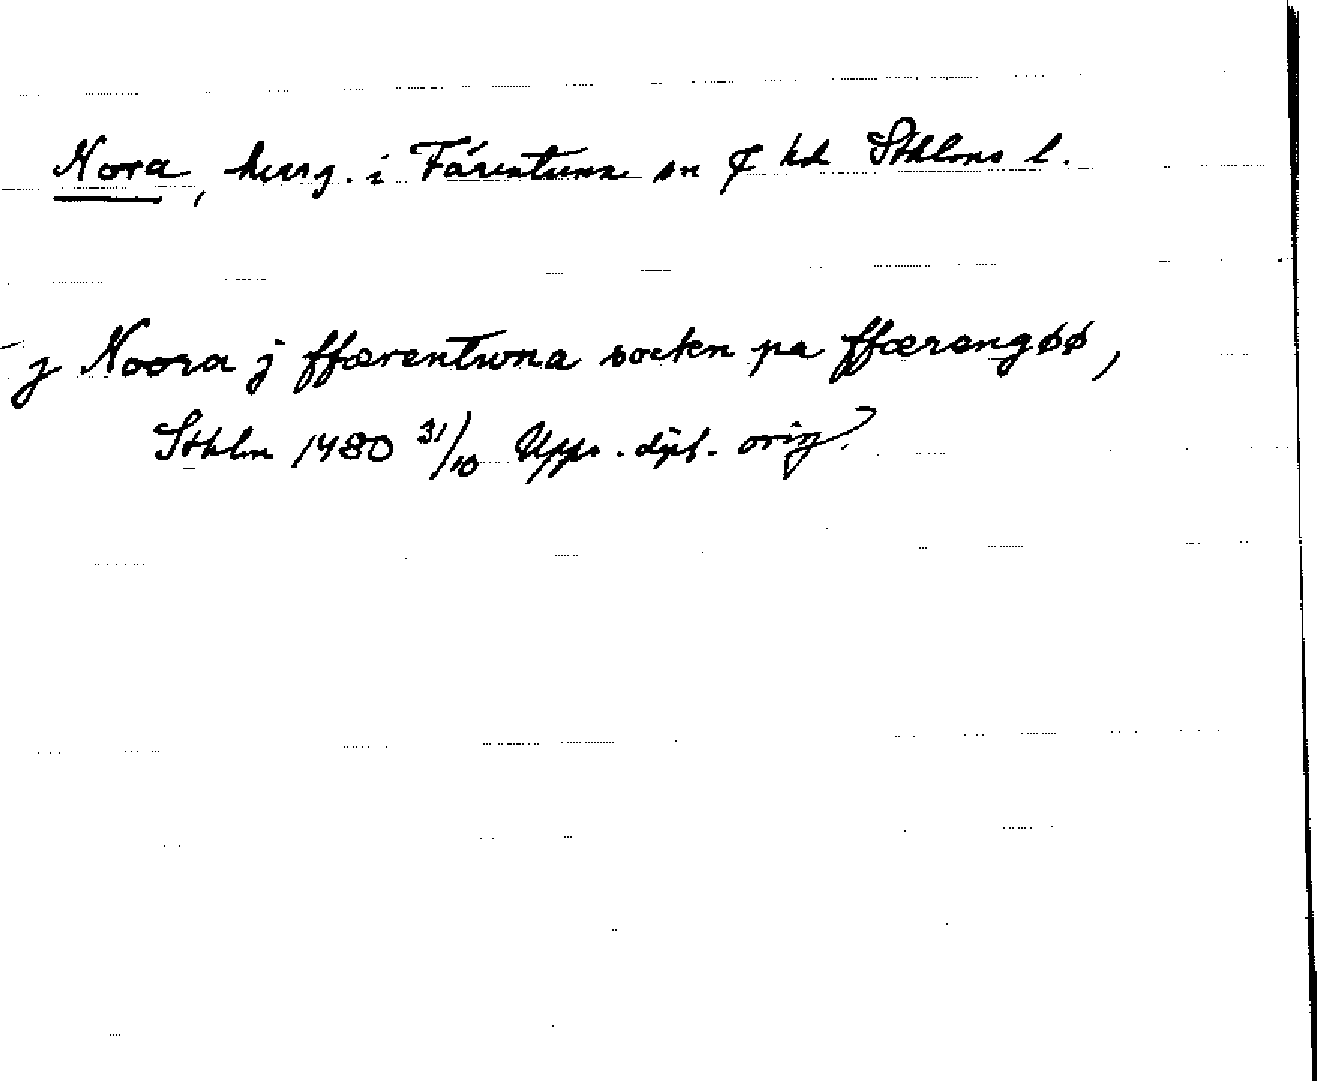 Nora, herrg. i Färentuna sn o hd Sthlms l.
j Noora j ffærentwna socken pa ffærengøø,
Sthlm 1480 31/10 Upps. dpl. orig?